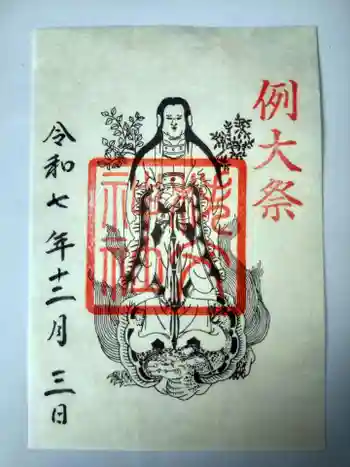 例大祭
神社
令和七年十二月三日